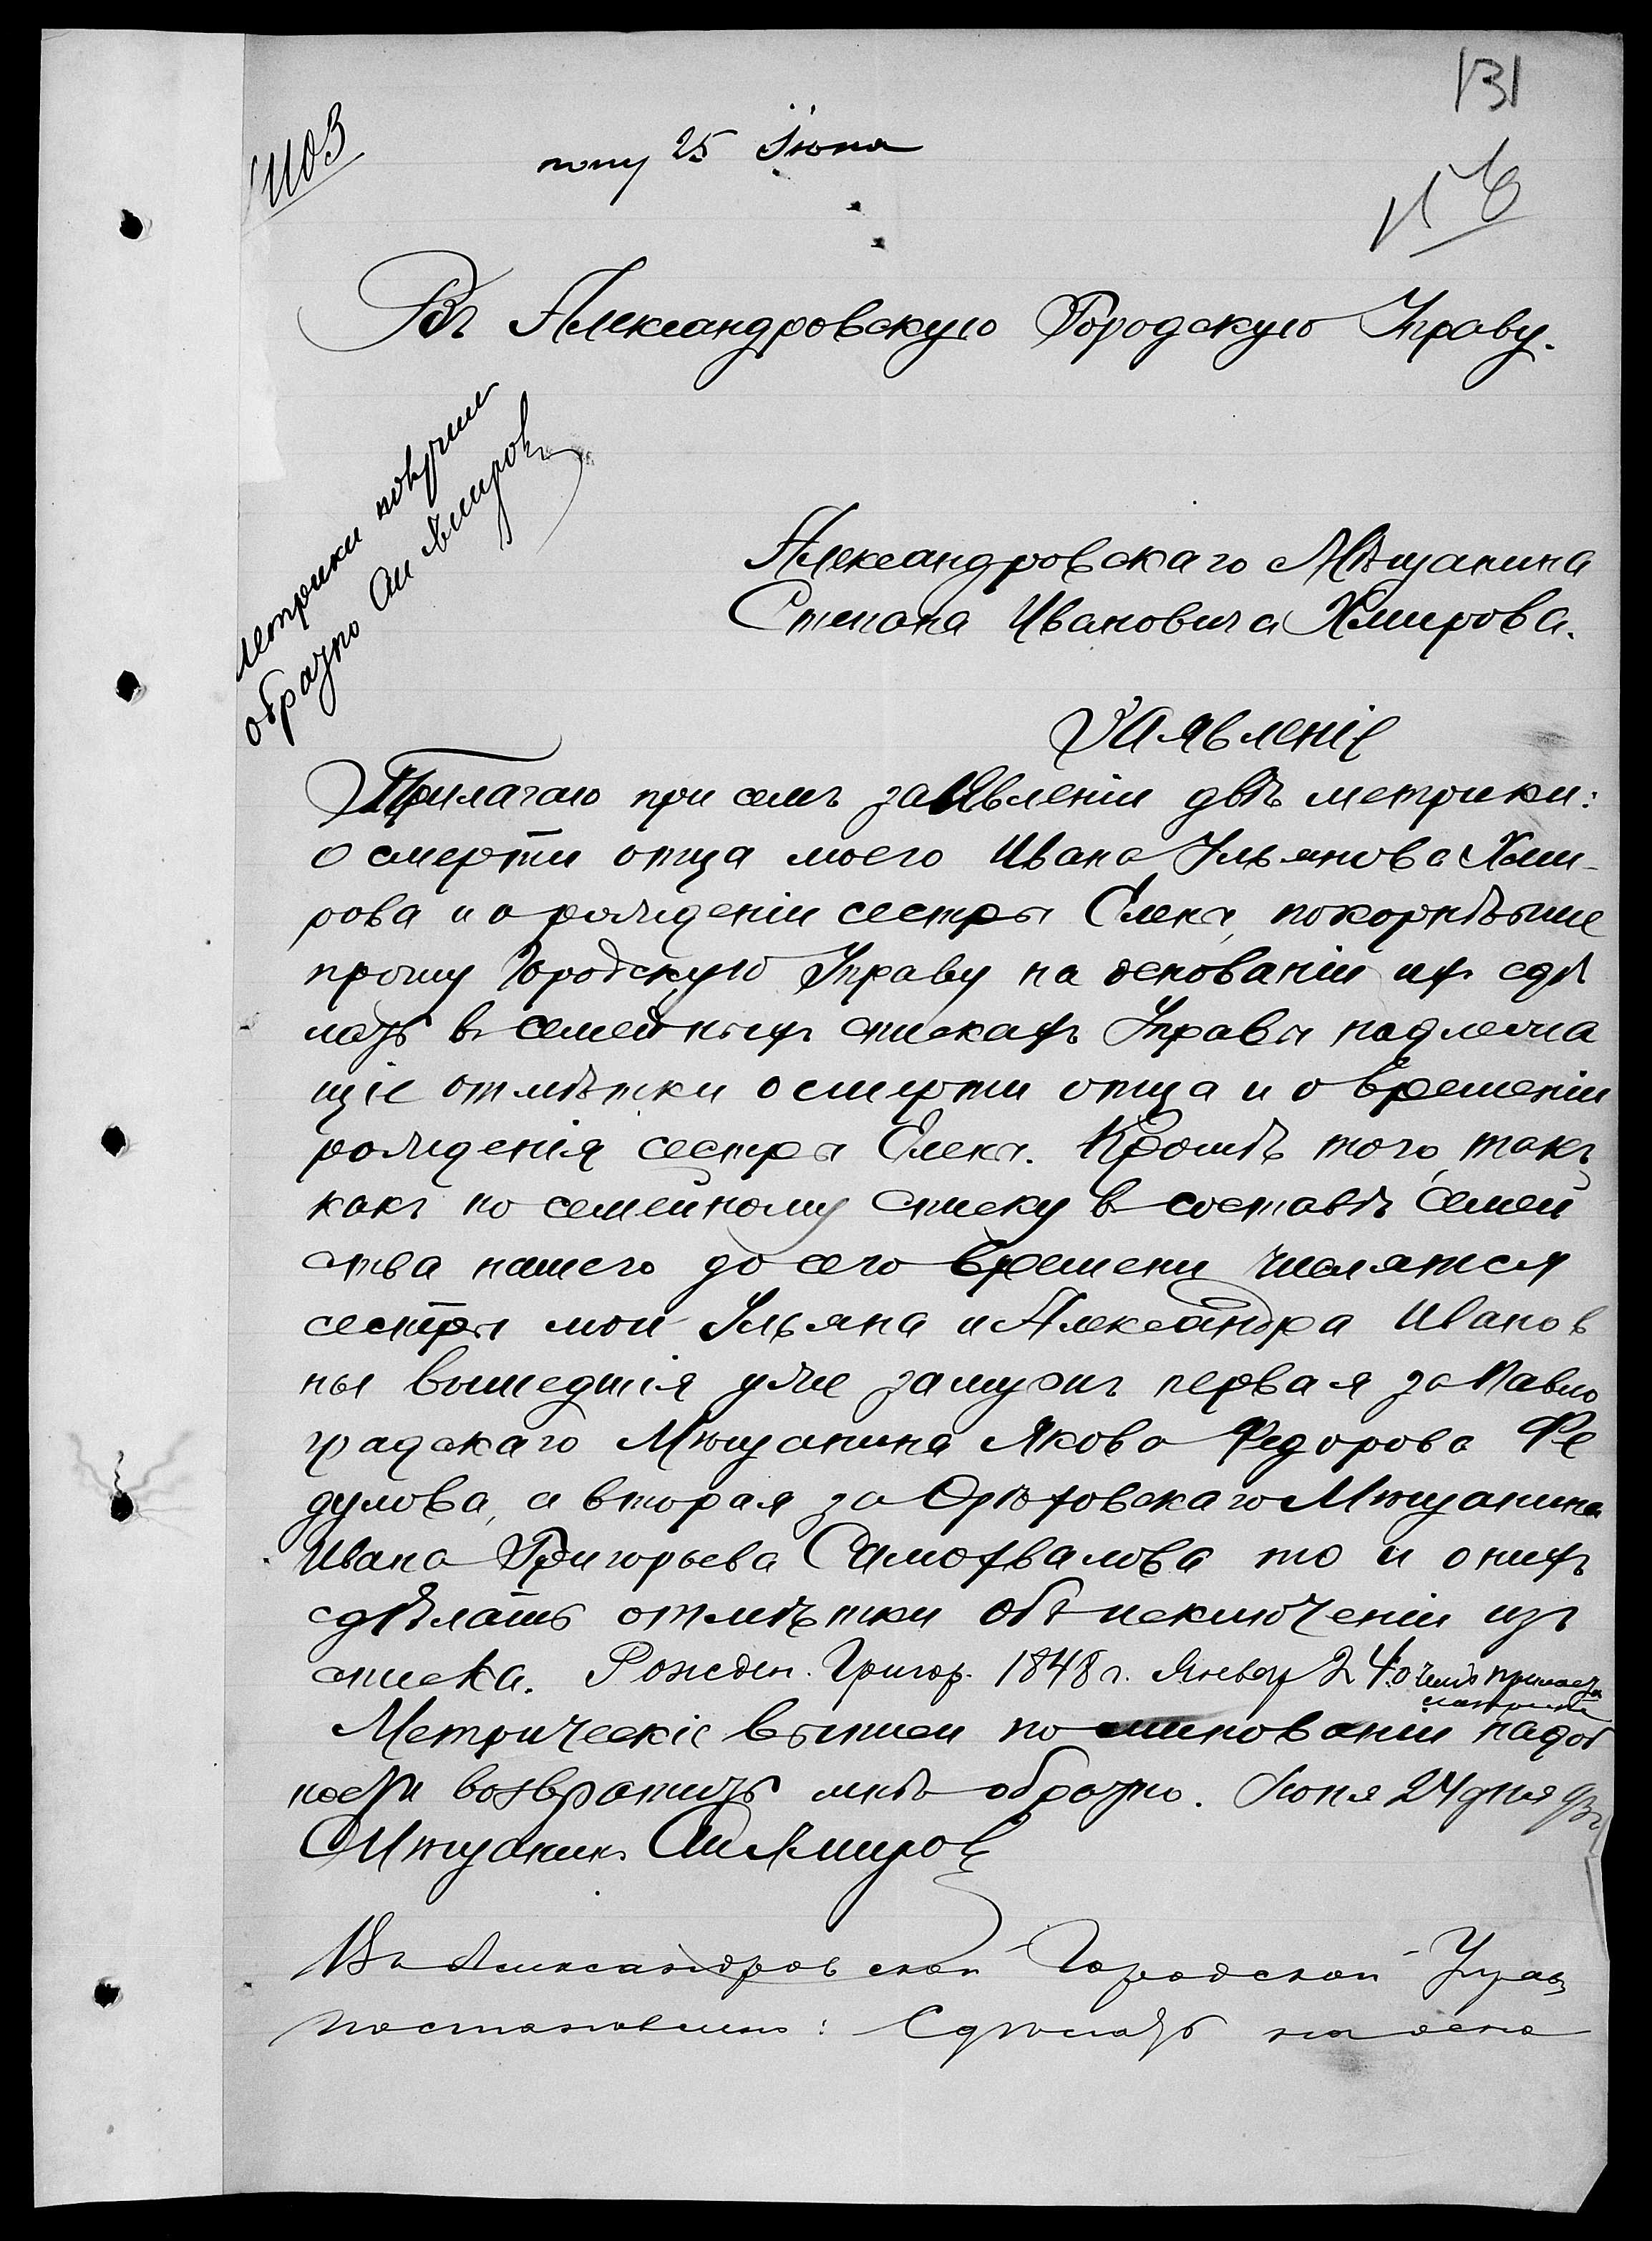 131
1103
полу 25 Іюня
Въ Александровскую Городскую Управу.
метрики получилъ
обратно Си Хмировъ
Александровскаго Мѣщанина
Степана Ивановича Хмирова.
Заявленіе
Прилагаю при семъ заявленіи двѣ метрики:
о смерти отца моего Ивана Ульянова Хми-
рова и о рожденіи сестры Елены, покорнѣйше
прошу Городскую Управу на основаніи ихъ сдѣ
лать въ семейныхъ спискахъ Управы надлежа
щіе отмѣтки о смерти отца и о времени
рожденія сестры Елены. Кромѣ того, такъ
какъ по семейному списку въ составѣ семей
ства нашего до сего времени числятся
сестры мои Ульяна и Александра Иванов
ны вышедшія уже замужъ первая за Павло
градскаго Мѣщанина Якова Федорова Фе
дулова, а вторая за Орѣховскаго Мѣщанина
Ивана Григорьева Самохвалова то и о нихъ
сдѣлать отмѣтки объ исключеніи изъ
списка. Рожден. Григор. 1848 г. Январ 24. о чемъ
Метрическіе выписи по минованіи надоб
ности возвратить мнѣ обратно. Іюня 24 дня
Мѣщанинъ Си Хмировъ
Въ Александровской Городской Управ
постановлено: Сдѣлать на осно